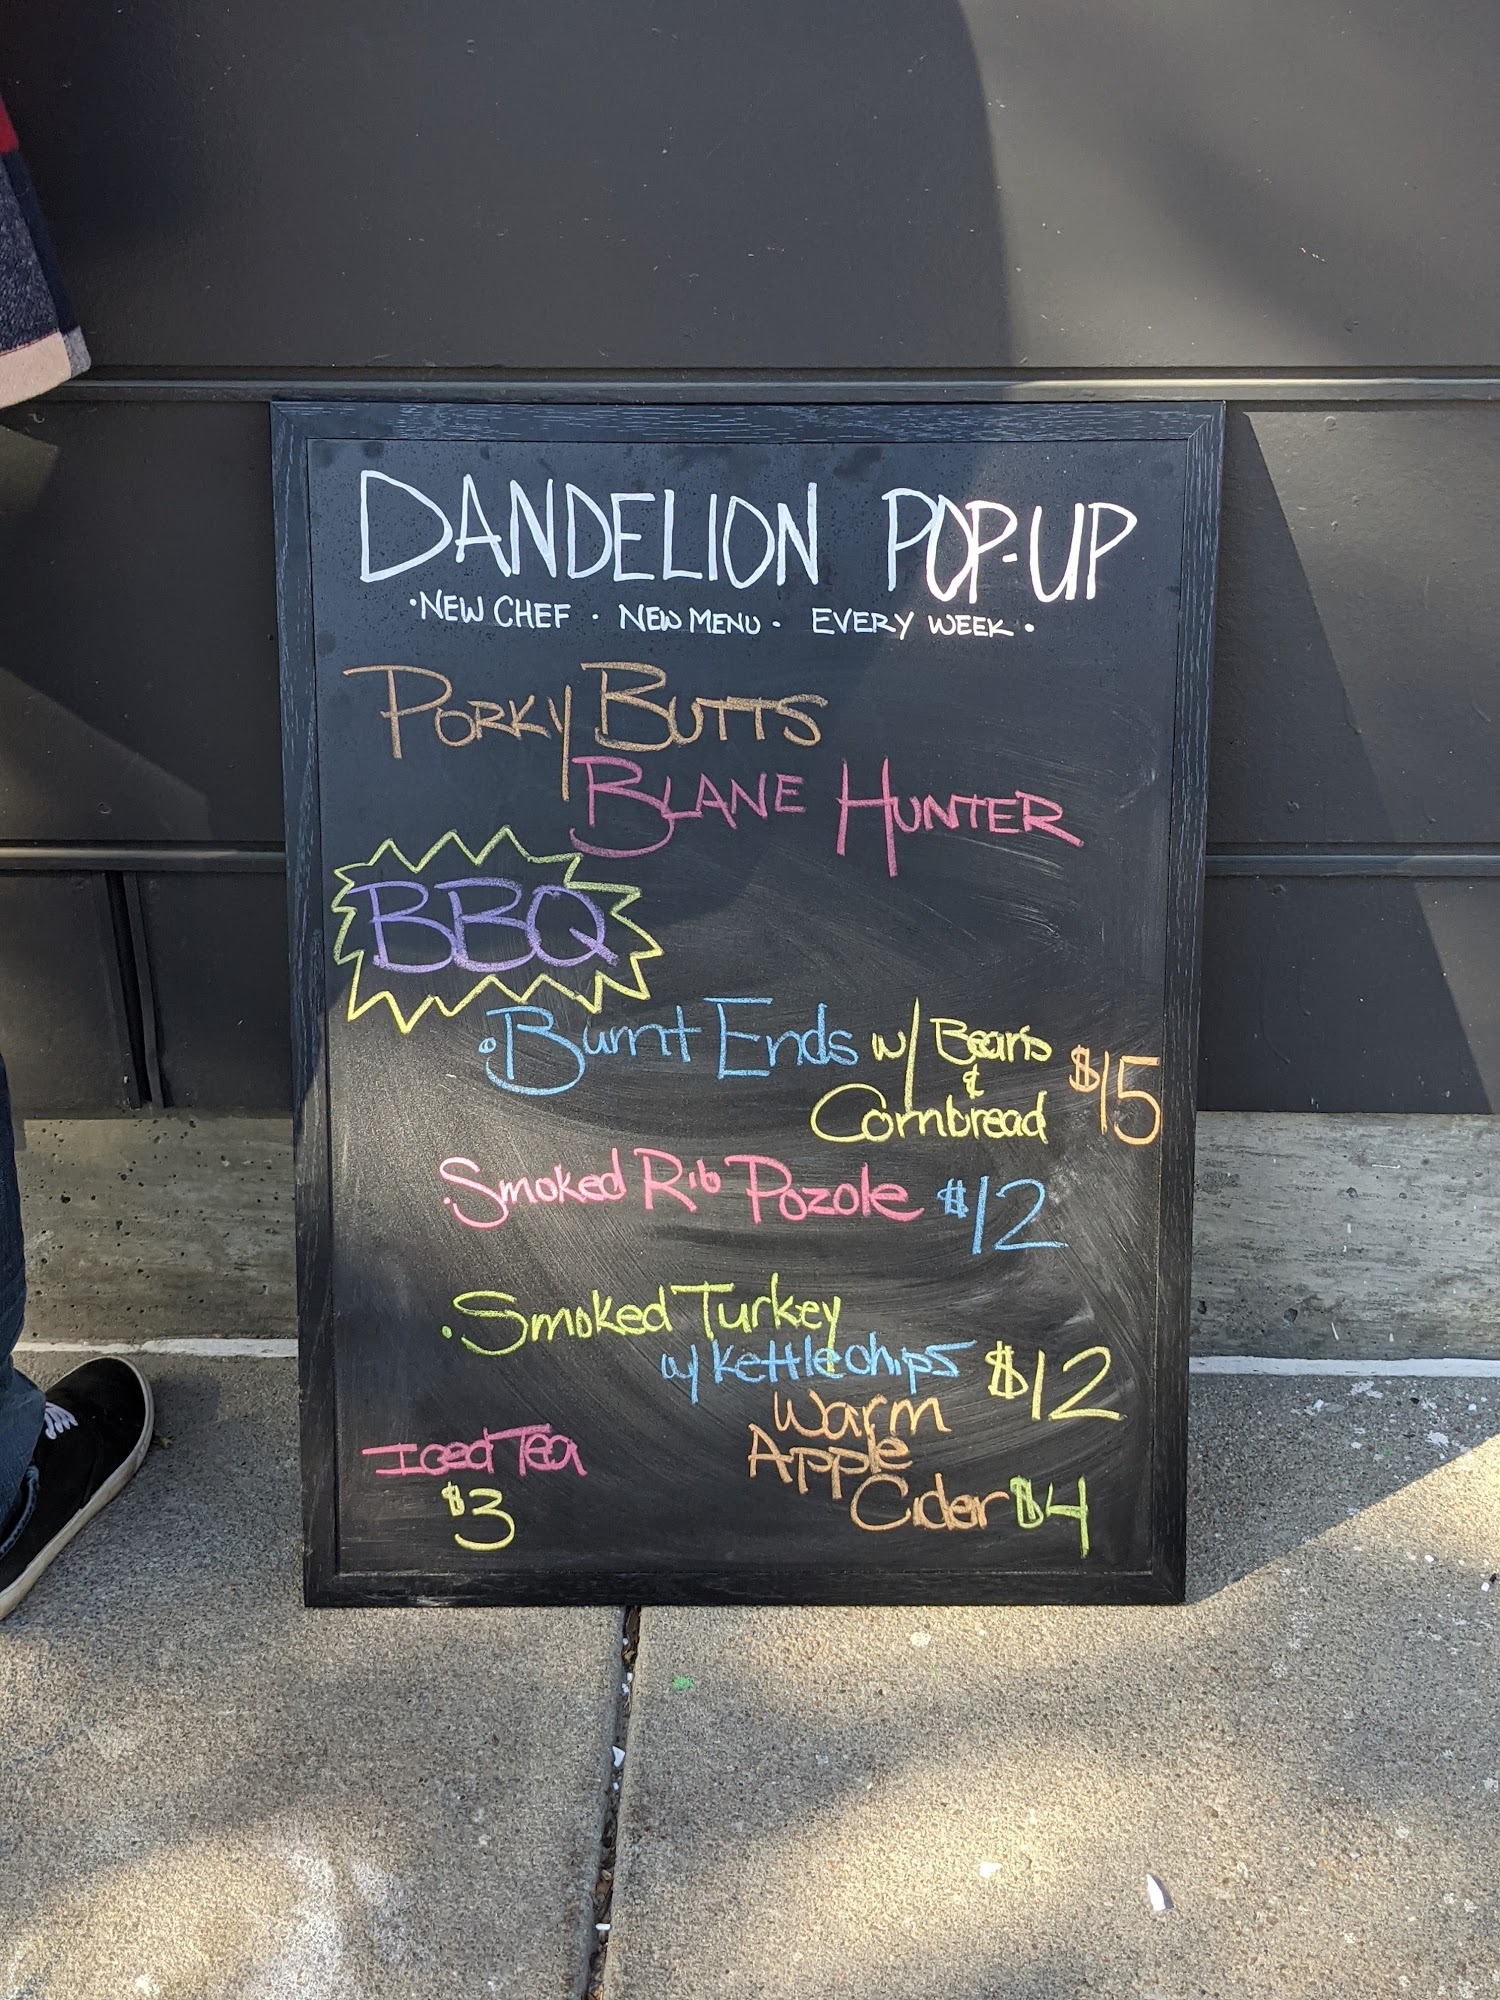 DANDELION POP-UP
· NEW CHEF · NEW MENU · EVERY WEEK ·
PORKY BUTTS
BLANE HUNTER
BBQ
• Burnt Ends w/ Beans
& $15
Cornbread
• Smoked Rib Pozole $12
• Smoked Turkey
w/ Kettle chips $12
Iced Tea
$3
Warm
Apple
Cider $4